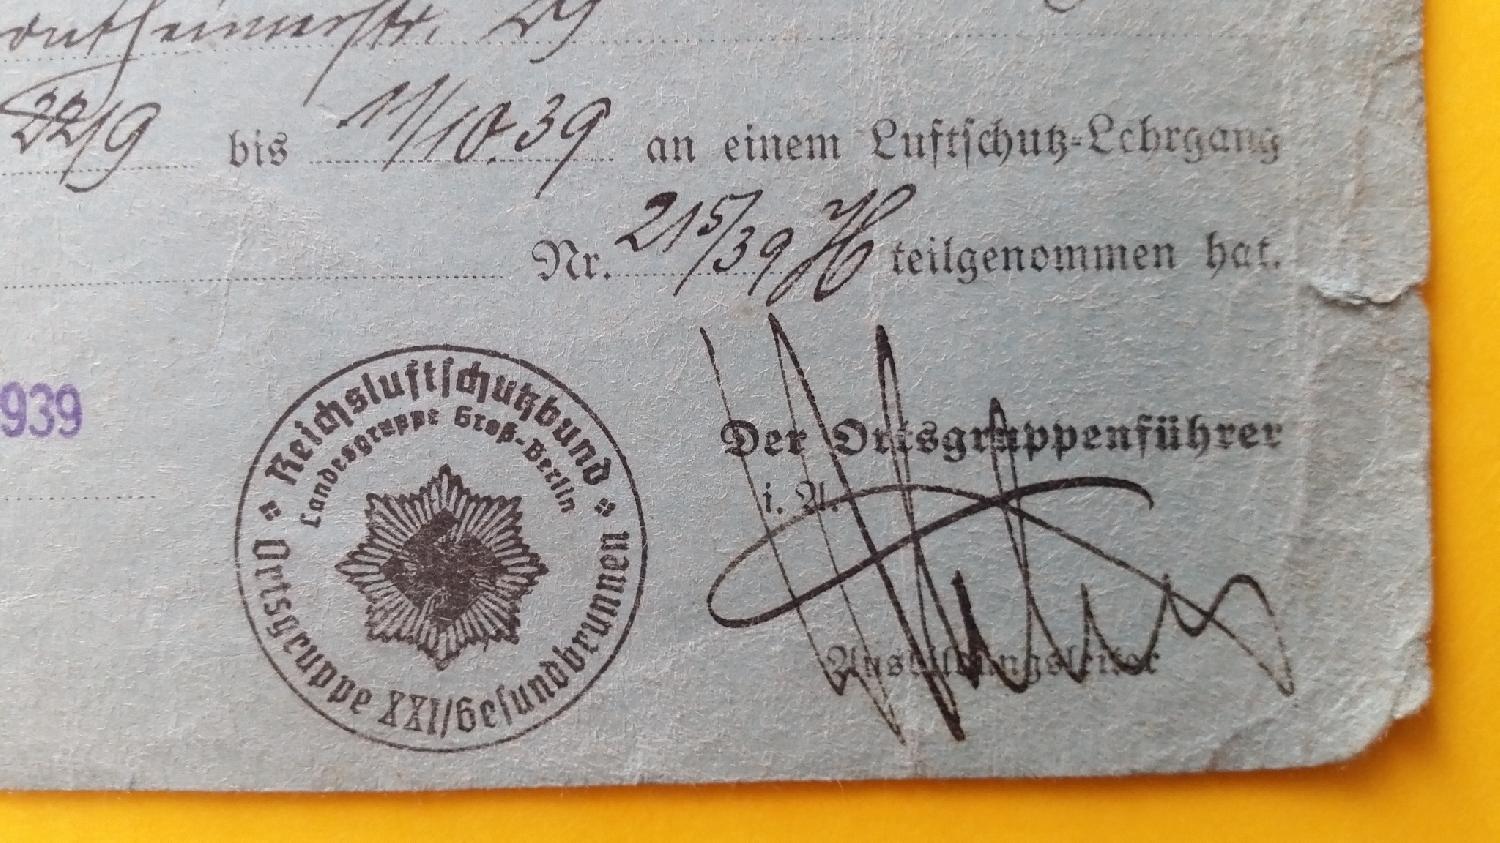 29
22/9 bis 11/10.39 an einem Luftschutz-Lehrgang
Nr. 215/39 teilgenommen hat.
939
Reichsluftschutzbund
Landesgruppe Groß-Berlin
Ortsgruppe XXI/Gesundbrunnen
Der Ortsgruppenführer
i. A.
Ausbildungsleiter